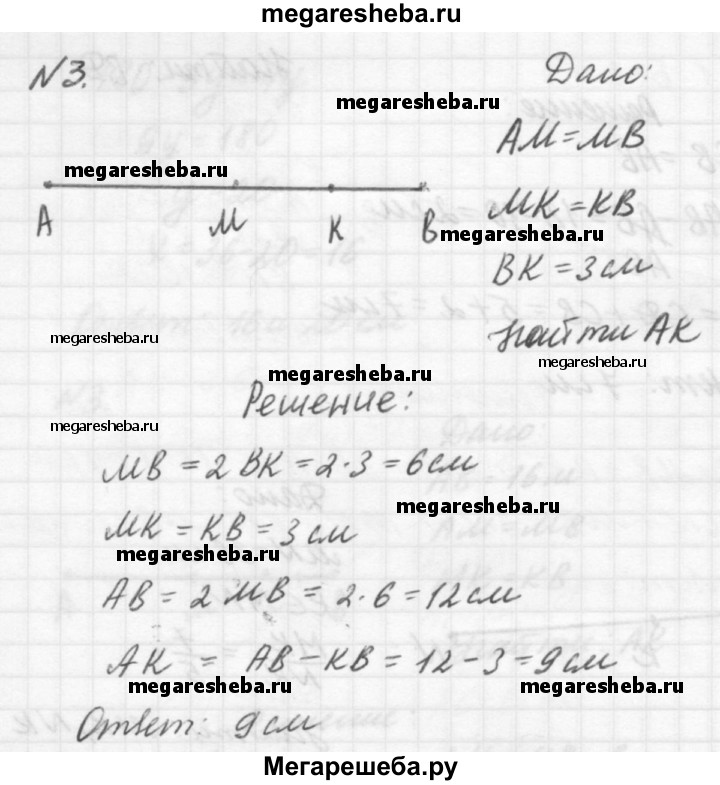 megaresheba.ru
№3.
Дано:
megaresheba.ru
АМ = МВ
megaresheba.ru
А М К В
МК = КВ
megaresheba.ru
ВК = 3 см
найти АК
megaresheba.ru
megaresheba.ru
megaresheba.ru
Решение:
megaresheba.ru
МВ = 2 ВК = 2·3 = 6 см
megaresheba.ru
МК = КВ = 3 см
megaresheba.ru
АВ = 2 МВ = 2·6 = 12 см
АК = АВ – КВ = 12 – 3 = 9 см
megaresheba.ru megaresheba.ru
Ответ: 9 см
Мегарешеба.ру